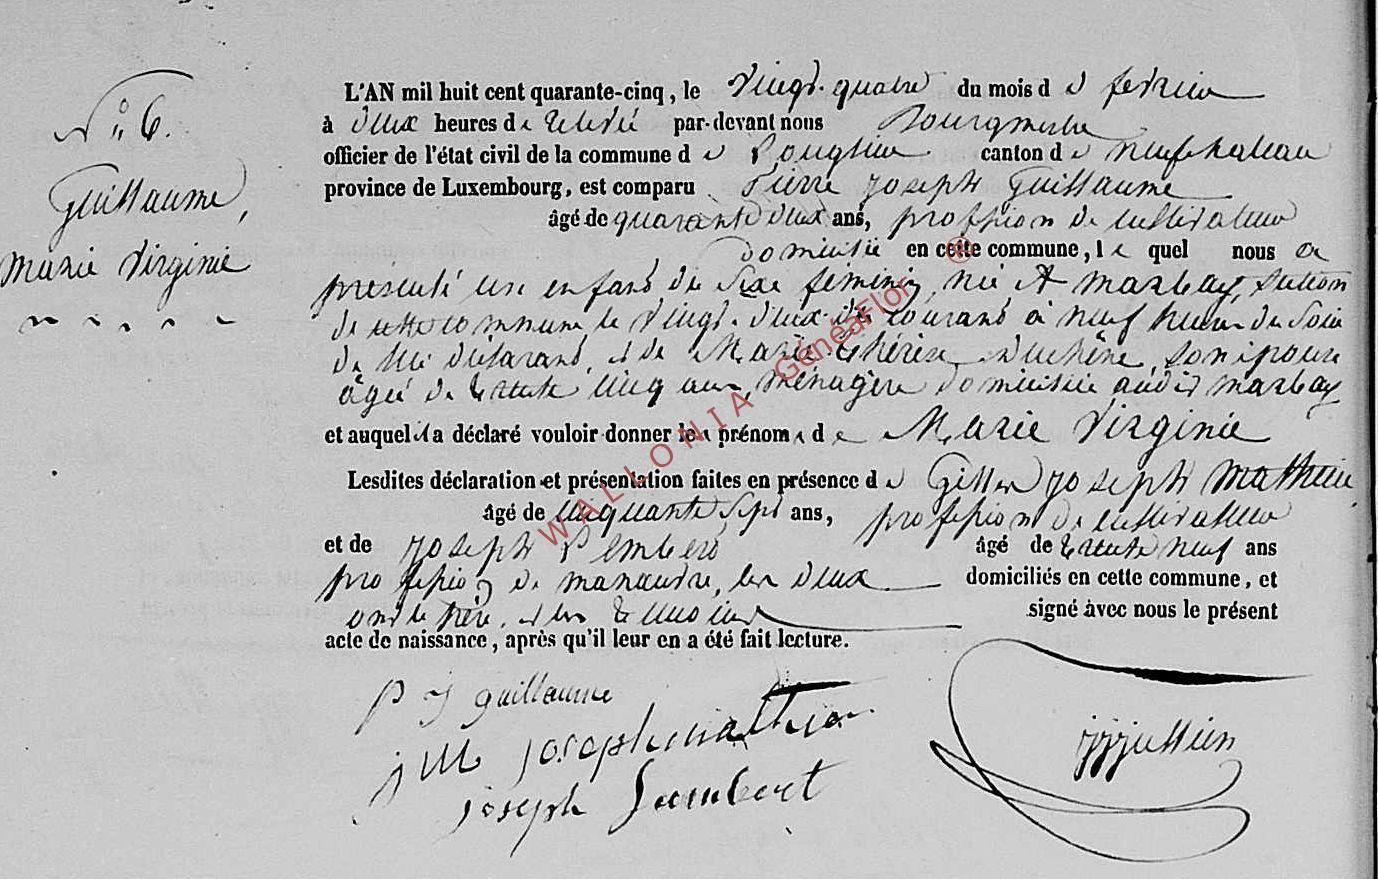 N° 6.
Guillaume,
Marie Virginie
L'AN mil huit cent quarante-cinq, le vingt-quatre du mois de fevrier
à deux heures de relevée par-devant nous Bourgmestre
officier de l'état civil de la commune de canton de neufchateau
province de Luxembourg, est comparu Pierre joseph Guillaume
âgé de quarante deux ans, profession de cultivateur
domicilié en cette commune, le quel nous a
présenté un enfant du sexe féminin, née à marbay, section
de cette commune le vingt-deux du courant à neuf heures du soir
de lui déclarant, et de Marie Thérèse duchêne, son épouse
âgée de trente cinq ans, ménagère domiciliée audit marbay
et auquel il a déclaré vouloir donner les prénoms de Marie Virginie
Lesdites déclaration et présentation faites en présence de Gilles joseph Mathieu
âgé de cinquante sept ans, profession de cultivateur
et de joseph âgé de trente neuf ans
profession de manœuvre, les deux domiciliés en cette commune, et
ont le père, et les témoins signé avec nous le présent
acte de naissance, après qu'il leur en a été fait lecture.
p j guillaume
joseph mathieu
joseph Lambert
WALLONIA GénéaFlor ®